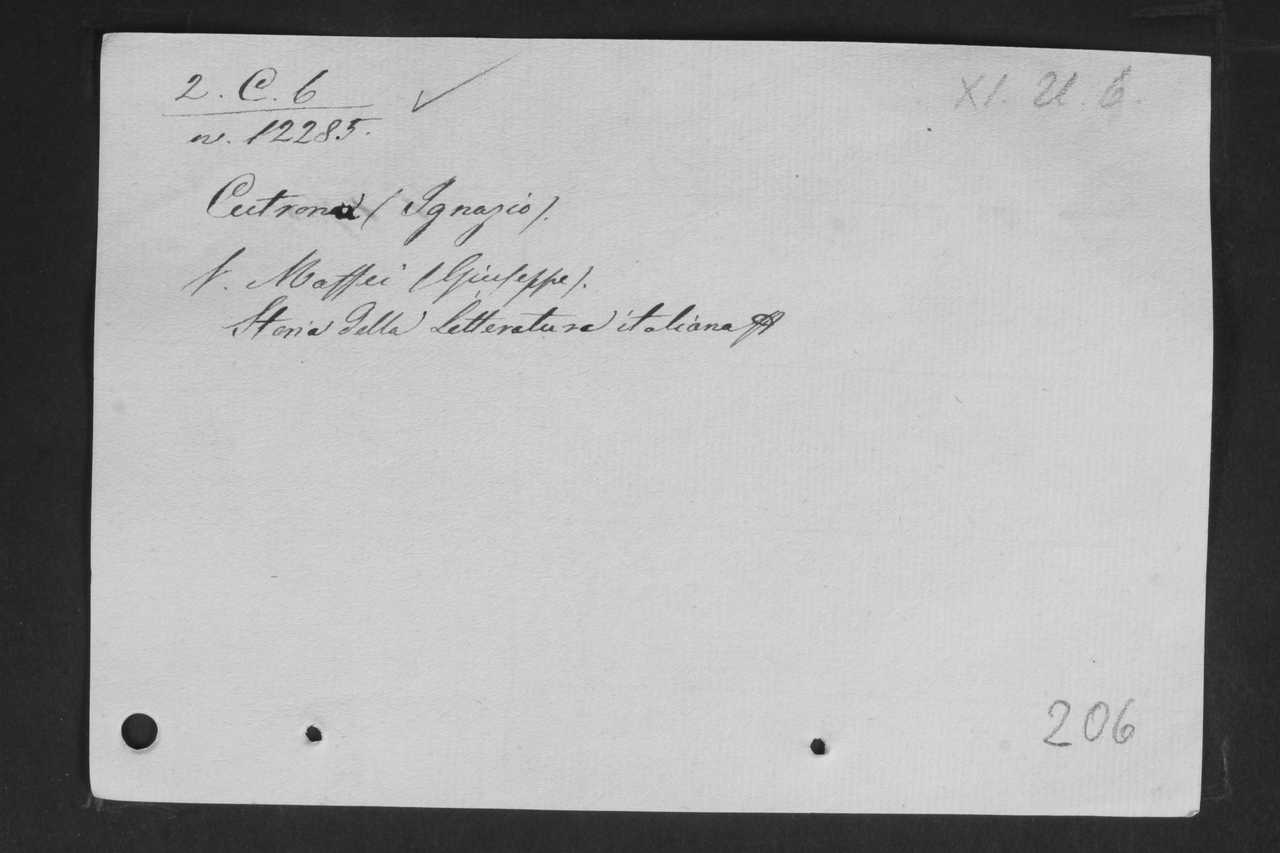 2. C. 6
XI. U. 6.
n. 12285.
Cutrona (Ignazio).
V. Maffei (Giuseppe).
Storia della Letteratura italiana
206